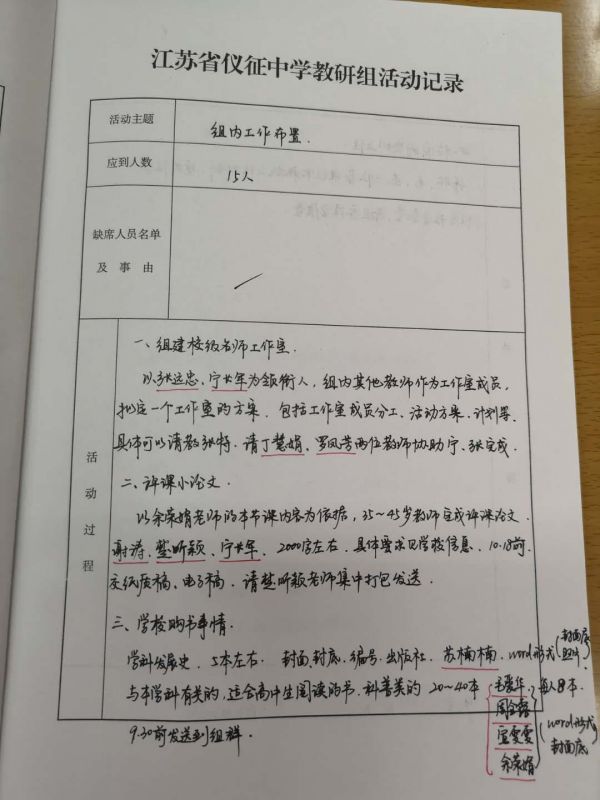 江苏省仪征中学教研组活动记录
活动主题
组内工作布置.
应到人数
15人
缺席人员名单
及 事 由
活动过程
一、组建校级名师工作室.
以张远忠、宁长军为领衔人, 组内其他教师作为工作室成员,
拟定一个工作室的方案. 包括工作室成员分工、活动方案、计划等.
具体可以请教张特. 请丁慧娟、罗凤芳两位教师协助宁、张完成.
二、评课小论文.
以余荣娟老师的本节课内容为依据, 35~45岁教师完成评课论文.
谢涛、楚昕颖、宁长军. 2000字左右. 具体要求见学校信息. 10.18前
交纸质稿、电子稿. 请楚昕颖老师集中打包发送.
三、学校购书事情.
学科发展史. 5本左右. 封面、封底、编号、出版社. 苏楠楠. word形式(封面底 照片)
与本学科有关的, 适合高中生阅读的书. 科普类的 20~40本 每人8本.
周金露
宣雯雯
余荣娟
(word形式 封面底)
9.30前发送到组群.